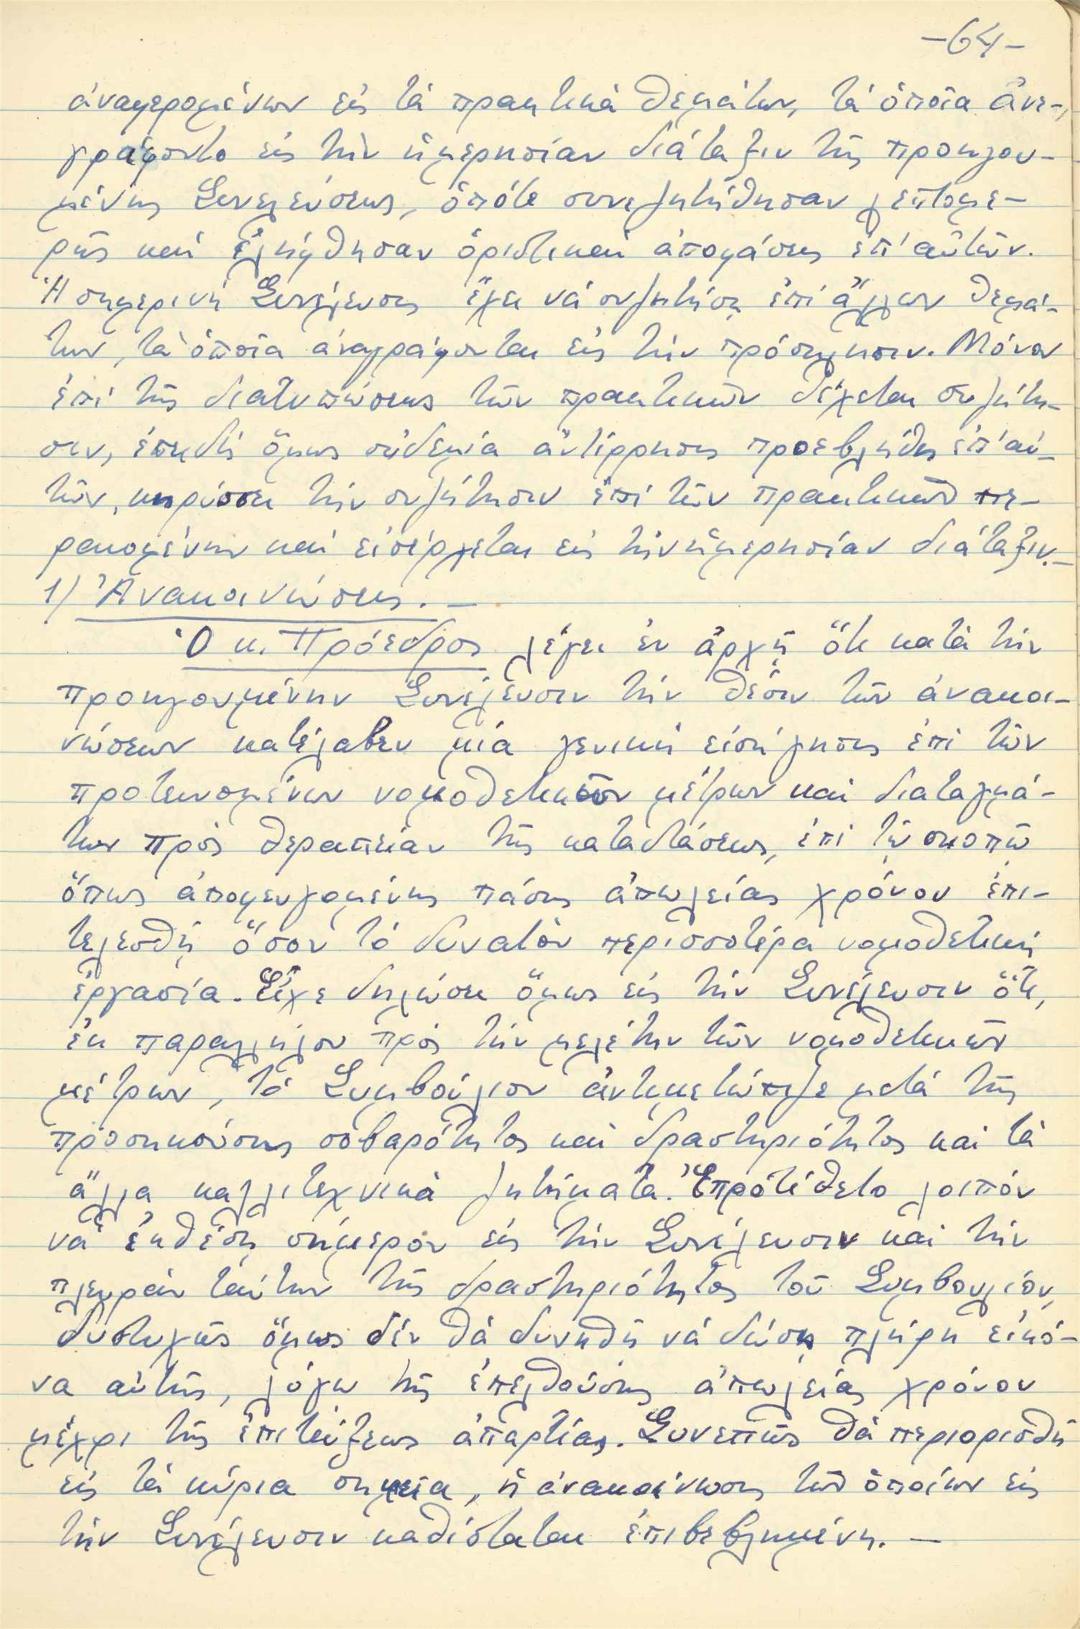 -64-
ἀναφερομένων εἰς τά πρακτικά θεμάτων, τά ὁποῖα ἀνε-
γράφοντο εἰς τήν ἡμερησίαν διάταξιν τῆς προηγου-
μένης Συνελεύσεως, ὁπότε συνεζητήθησαν λεπτομε-
ρῶς καί ἐλήφθησαν ὁριστικαί ἀποφάσεις ἐπ' αὐτῶν.
Ἡ σημερινή Συνέλευσις ἔχει νά συζητήσῃ ἐπί ἄλλων θεμά-
των, τά ὁποῖα ἀναγράφονται εἰς τήν πρόσκλησιν. Μόνον
ἐπί τῆς διατυπώσεως τῶν πρακτικῶν δέχεται συζήτη-
σιν, ἐπειδή ὅμως οὐδεμία ἀντίρρησις προεβλήθη ἐπ' αὐ-
τῶν, κηρύσσει τήν συζήτησιν ἐπί τῶν πρακτικῶν πε-
ρακομένην καί εἰσέρχεται εἰς τήν ἡμερησίαν διάταξιν.-
1) Ἀνακοινώσεις.-
Ὁ κ. Πρόεδρος λέγει ἐν ἀρχῇ ὅτι κατά τήν
προηγουμένην Συνέλευσιν τήν θέσιν τῶν ἀνακοι-
νώσεων κατέλαβεν μία γενική εἰσήγησις ἐπί τῶν
προτεινομένων νομοθετικῶν μέτρων καί διαταγμά-
των πρός θεραπείαν τῆς καταστάσεως, ἐπί τῷ σκοπῷ
ὅπως ἀποφευγομένης πάσης ἀπωλείας χρόνου ἐπι-
τελεσθῇ ὅσον τό δυνατόν περισσοτέρα νομοθετική
ἐργασία. Εἶχε δηλώσει ὅμως εἰς τήν Συνέλευσιν ὅτι,
ἐκ παραλλήλου πρός τήν μελέτην τῶν νομοθετικῶν
μέτρων, τό Συμβούλιον ἀντιμετώπιζε μετά τῆς
προσηκούσης σοβαρότητος καί δραστηριότητος καί τά
ἄλλα καλλιτεχνικά ζητήματα. Ἐπροτίθετο λοιπόν
νά ἐκθέσῃ σήμερον εἰς τήν Συνέλευσιν καί τήν
πλευράν ταύτην τῆς δραστηριότητος τοῦ Συμβουλίου,
δυστυχῶς ὅμως δέν θά δυνηθῇ νά δώσῃ πλήρη εἰκό-
να αὐτῆς, λόγῳ τῆς ἐπελθούσης ἀπωλείας χρόνου
μέχρι τῆς ἐπιτεύξεως ἀπαρτίας. Συνεπῶς θά περιορισθῇ
εἰς τά κύρια σημεῖα, ἡ ἀνακοίνωσις τῶν ὁποίων εἰς
τήν Συνέλευσιν καθίσταται ἐπιβεβλημένη.-